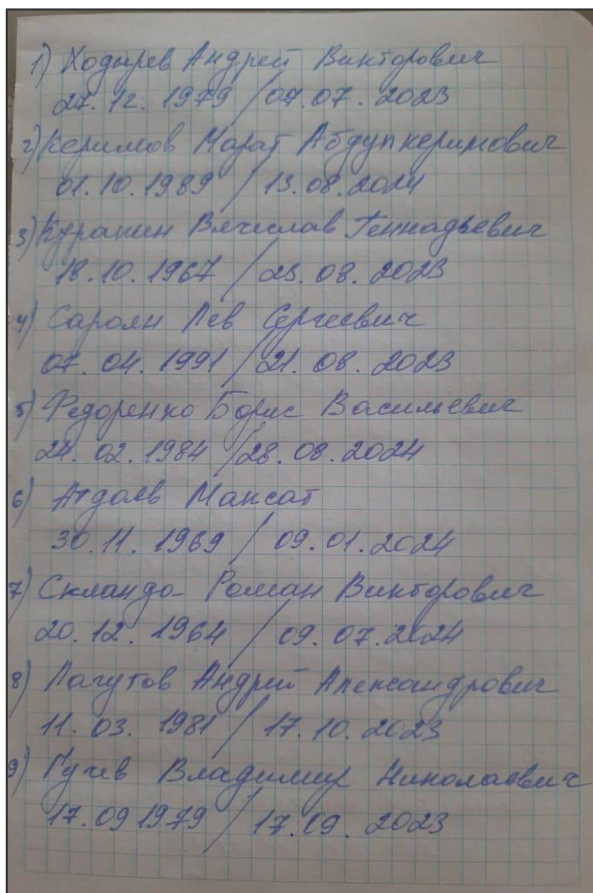 1) Ходырев Андрей Викторович
27.12.1979 / 07.07.2023
2) Керимов Марат Абдулкеримович
01.10.1989 / 13.08.2024
3) Куракин Вячислав Геннадьевич
18.10.1967 / 23.08.2023
4) Сароян Лев Сергеевич
07.04.1991 / 21.08.2023
5) Федоренко Борис Васильевич
24.02.1984 / 28.08.2024
6) Атдаев Максат
30.11.1969 / 09.01.2024
7) Скландо Роман Викторович
20.12.1964 / 09.07.2024
8) Лагутов Андрей Александрович
11.03.1981 / 17.10.2023
9) Гучев Владимир Николаевич
17.09 1979 / 17.09.2023